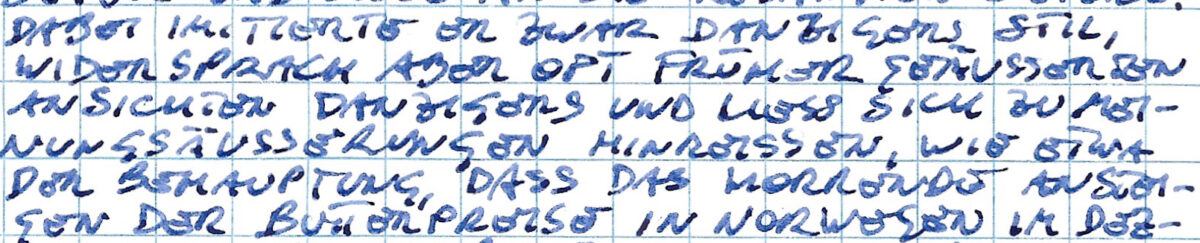 DABEI IMITIERTE ER ZWAR DANZIGERS STIL,
WIDERSPRACH ABER OFT FRÜHER GEÄUSSERTEN
ANSICHTEN DANZIGERS UND LIESS SICH ZU MEI-
NUNGSÄUSSERUNGEN HINREISSEN, WIE ETWA
DER BEHAUPTUNG, DASS DAS HORRENDE ANSTEI-
GEN DER BUTTERPREISE IN NORWEGEN IM DEZ-